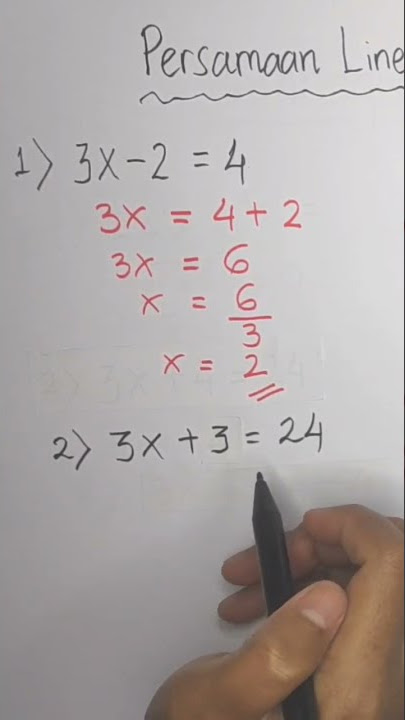 Persamaan Line
1) 3x - 2 = 4
3x = 4 + 2
3x = 6
x = 6/3
x = 2
2) 3x + 3 = 24